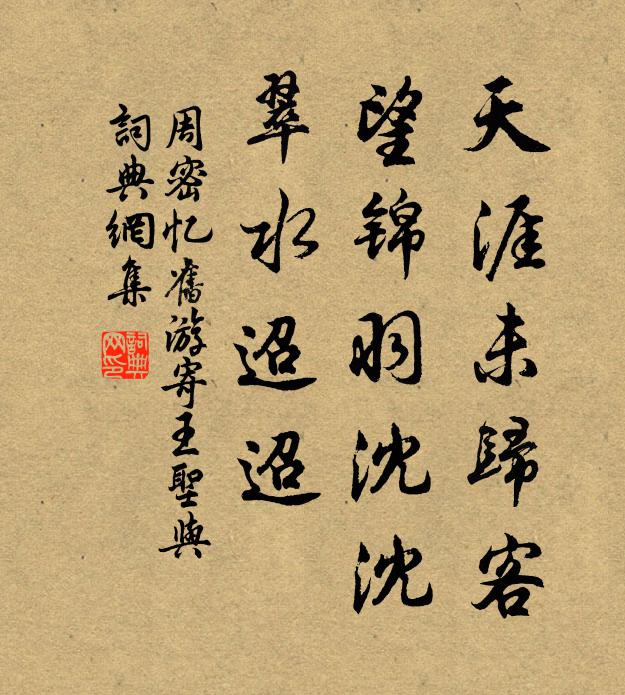 天涯未歸客
望锦羽沈沈
翠水迢迢
周密忆舊游寄王聖與
詞典網集
詞典网印